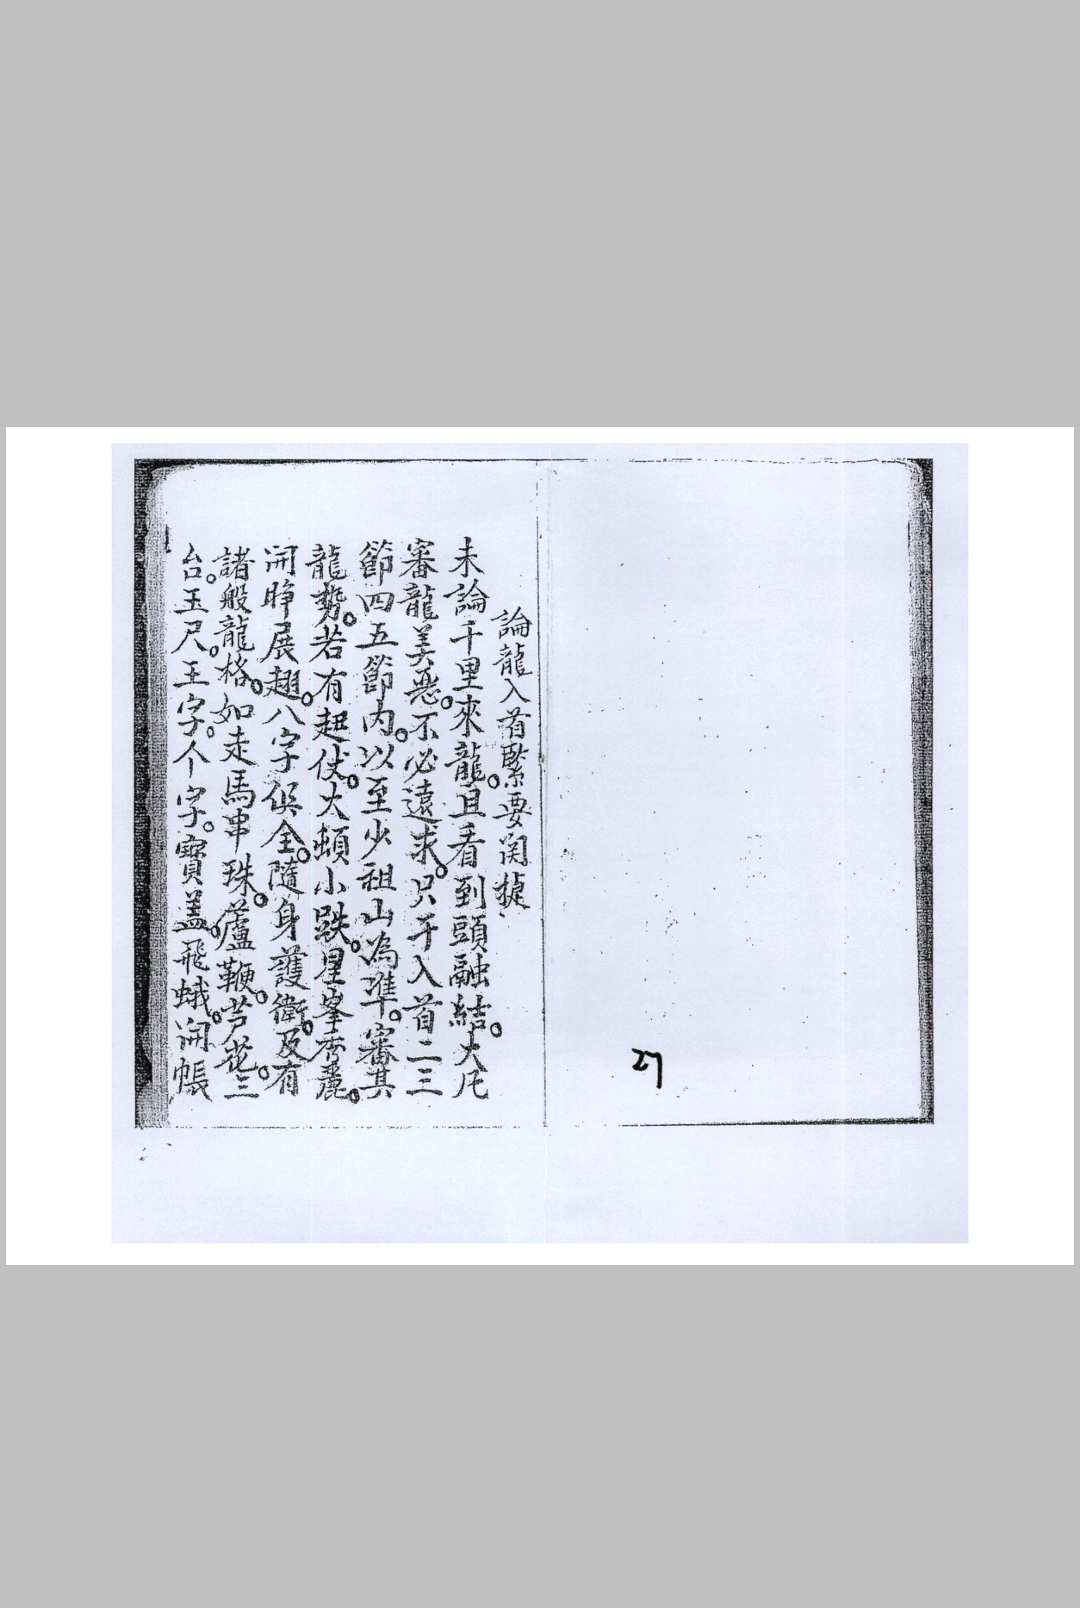 論龍入首緊要関捷
未論千里來龍。且看到頭融結。大凡
審龍美惡。不必遠求。只于入首二三
節四五節内。以至少祖山為準。審其
龍勢。若有起伏。大頓小跌。星峯秀麗。
開睁展翅。八字俱全。隨身護衛。及有
諸般龍格。如走馬串珠。蘆鞭。芦花。三
台。玉尺。王字。个字。寳盖。飛蛾。開帳
27